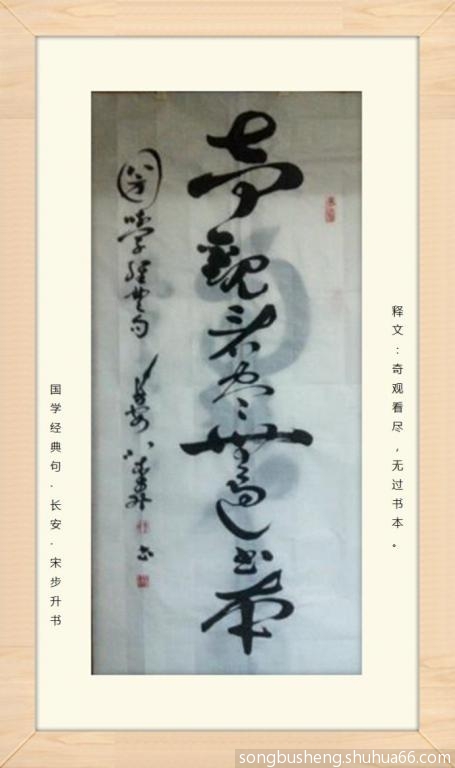 奇觀看尽無過书本
國學經典句 长安 宋步升 书
释文：奇观看尽，无过书本。
国学经典句·长安·宋步升书
songbusheng.shuhua66.com